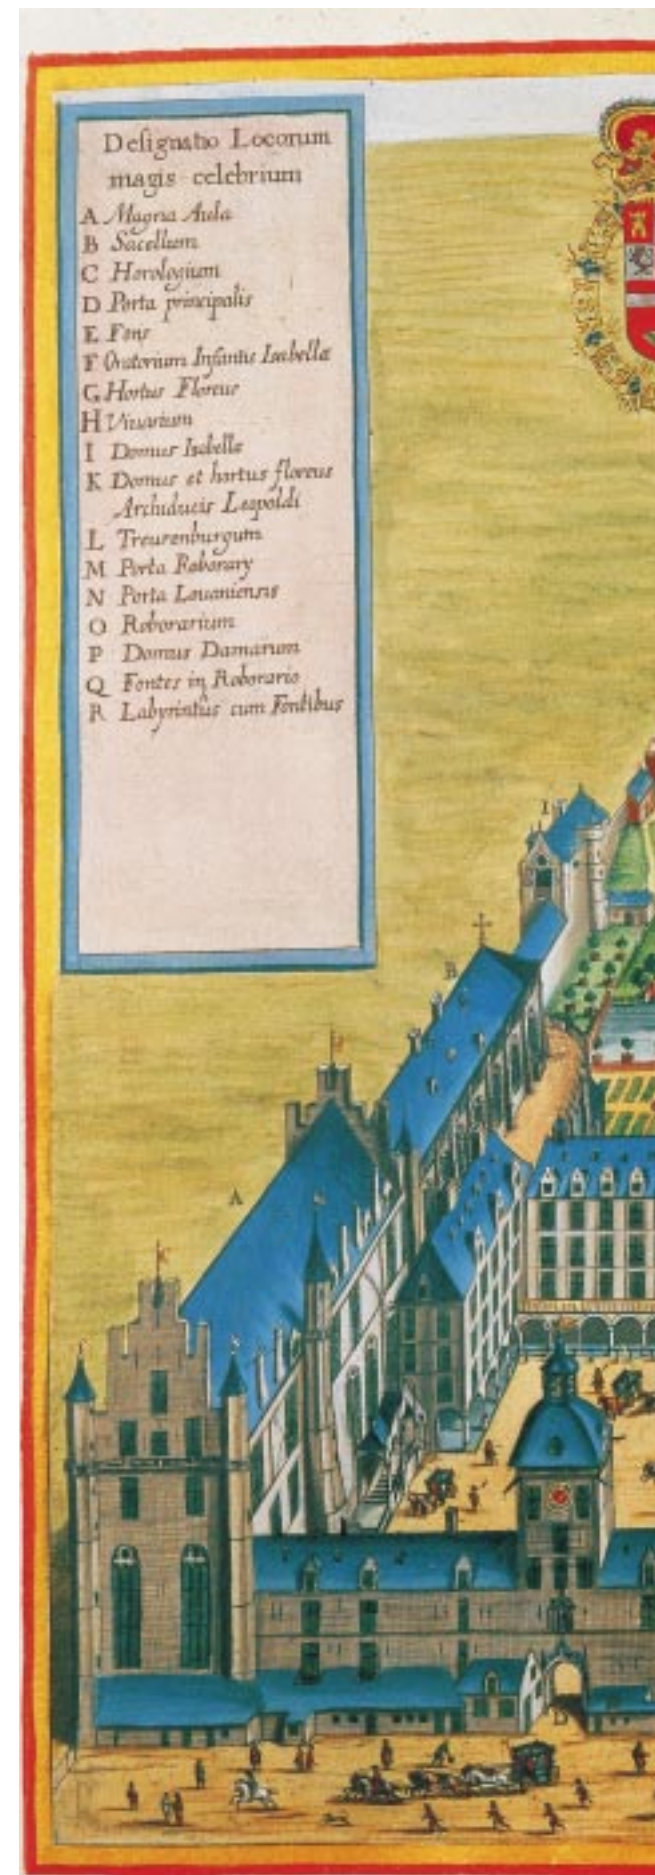 Designatio Locorum
magis celebrium
A Magna Aula
B Sacellum
C Horologium
D Porta principalis
E Fons
F Oratorium Infantis Isabellæ
G Hortus Floreus
H Vivarium
I Domus Isabellæ
K Domus et hortus floreus
Archiducis Leopoldi
L Treurenburgum
M Porta Roborary
N Porta Louaniensis
O Roborarium
P Domus Damarum
Q Fontes in Roborario
R Labyrintus cum Fontibus
I
B
A
D